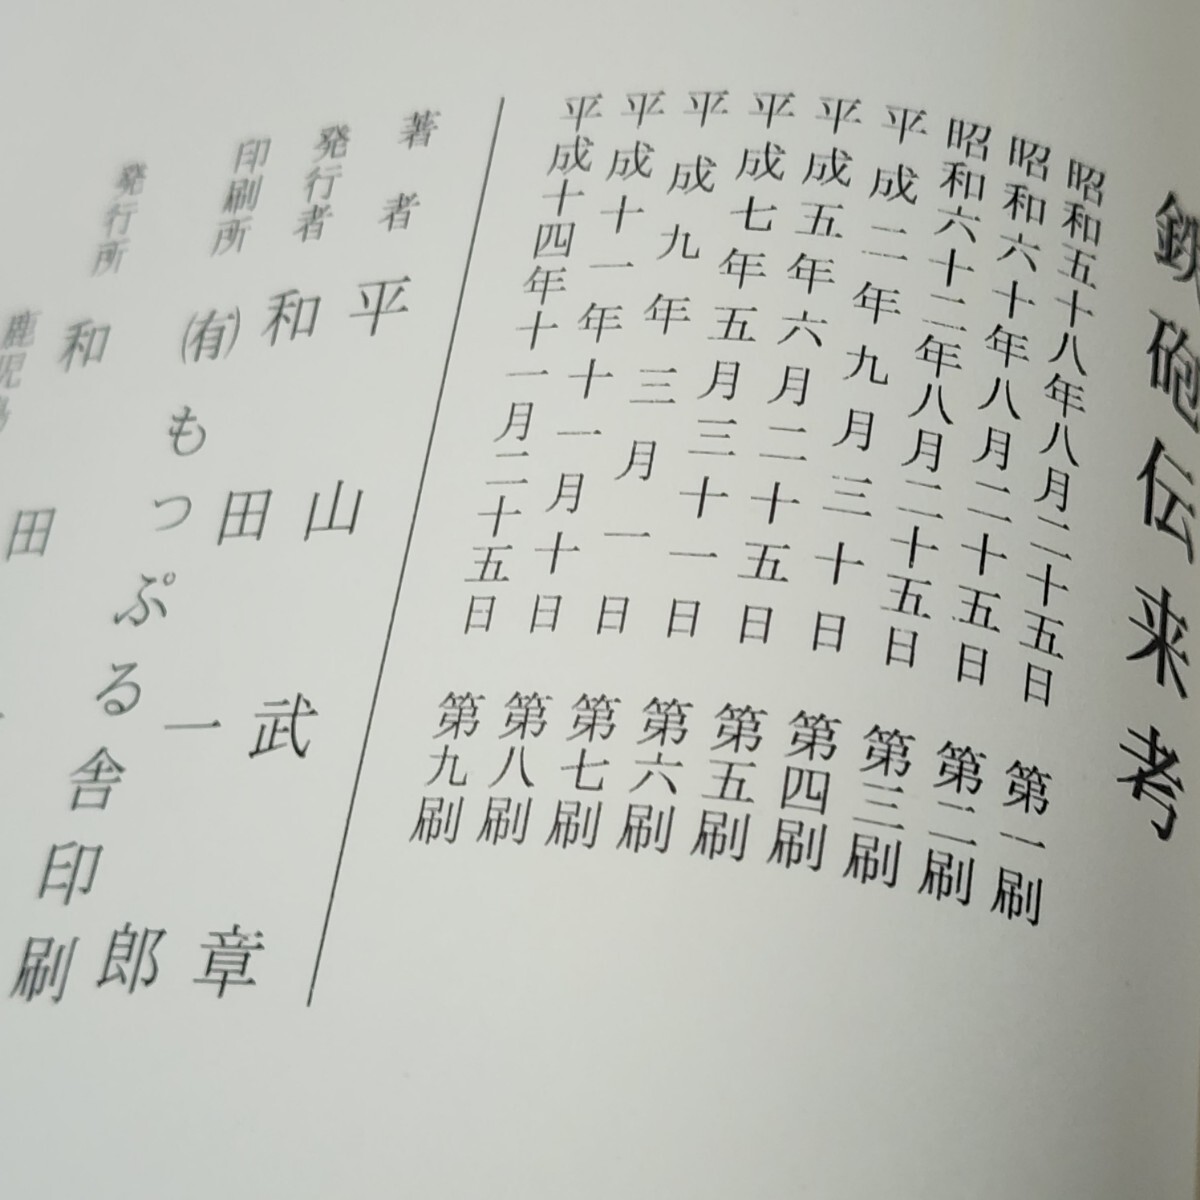 鉄砲伝来考
昭和五十八年八月二十五日 第一刷
昭和六十年八月二十五日 第二刷
昭和六十二年八月二十五日 第三刷
平成二年九月三十日 第四刷
平成五年六月二十五日 第五刷
平成七年五月三十一日 第六刷
平成九年三月一日 第七刷
平成十一年十一月十日 第八刷
平成十四年十一月二十五日 第九刷
著者 平山武章
発行者 和田一郎
印刷所 (有)もっぷる舎印刷
発行所 和田
鹿児島